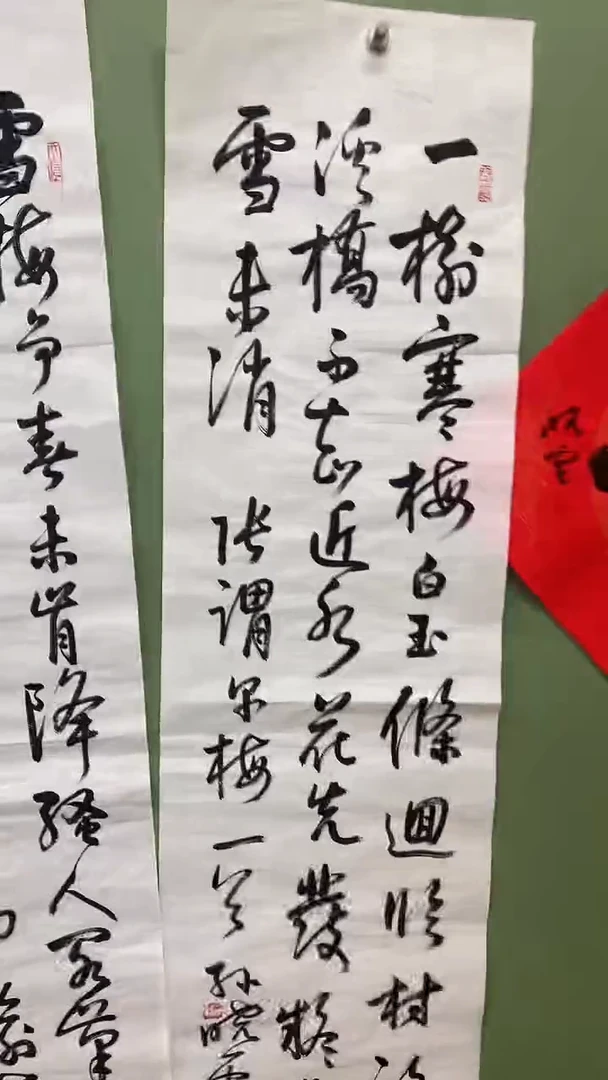 一樹寒梅白玉條迴臨村
溪橋不知近水花先發疑
雪未消 張謂早梅一首 孫曉雲
雪梅爭春未肯降騷人閣筆